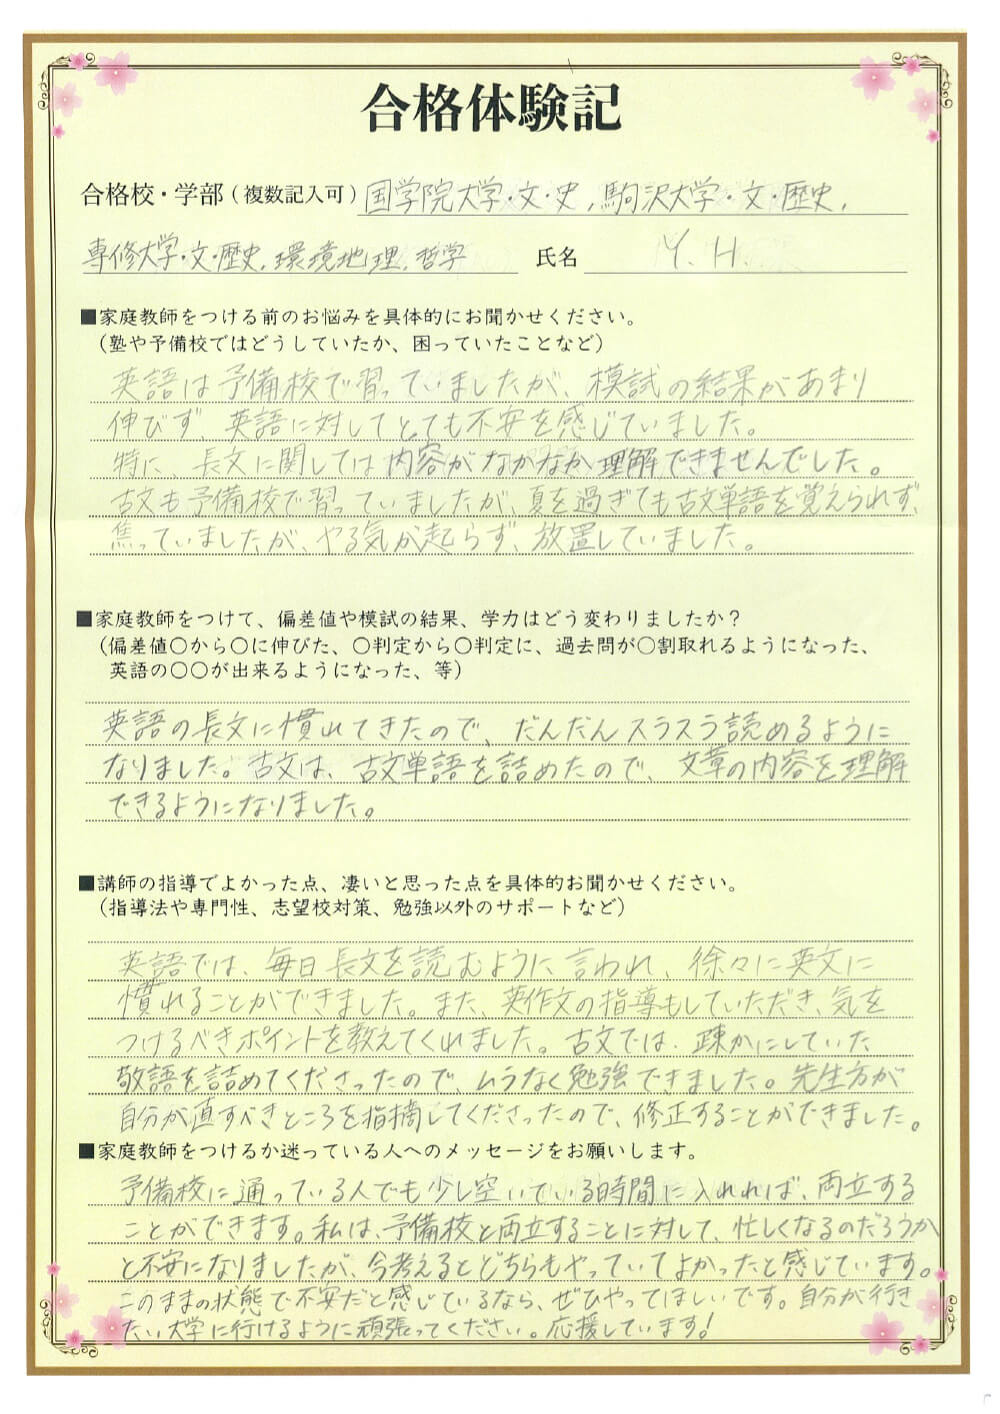 合格体験記
合格校・学部(複数記入可)国学院大学・文・史,駒沢大学・文・歴史,
専修大学・文・歴史,環境地理,哲学 氏名 Y.H.
■家庭教師をつける前のお悩みを具体的にお聞かせください。
(塾や予備校ではどうしていたか、困っていたことなど)
英語は予備校で習っていましたが、模試の結果があまり
伸びず、英語に対してとても不安を感じていました。
特に、長文に関しては内容がなかなか理解できませんでした。
古文も予備校で習っていましたが、夏を過ぎても古文単語を覚えられず、
焦っていましたが、やる気が起らず、放置していました。
■家庭教師をつけて、偏差値や模試の結果、学力はどう変わりましたか?
(偏差値〇から〇に伸びた、〇判定から〇判定に、過去問が〇割取れるようになった、
英語の〇〇が出来るようになった、等)
英語の長文に慣れてきたので、だんだんスラスラ読めるように
なりました。古文は、古文単語を詰めたので、文章の内容を理解
できるようになりました。
■講師の指導でよかった点、凄いと思った点を具体的お聞かせください。
(指導法や専門性、志望校対策、勉強以外のサポートなど)
英語では、毎日長文を読むように言われ、徐々に英文に
慣れることができました。また、英作文の指導もしていただき、気を
つけるべきポイントを教えてくれました。古文では、疎かにしていた
敬語を詰めてくださったので、ムラなく勉強できました。先生方が
自分が直すべきところを指摘してくださったので、修正することができました。
■家庭教師をつけるか迷っている人へのメッセージをお願いします。
予備校に通っている人でも少し空いている時間に入れれば、両立する
ことができます。私は、予備校と両立することに対して、忙しくなるのだろうか
と不安になりましたが、今考えるとどちらもやっていてよかったと感じています。
このままの状態で不安だと感じているなら、ぜひやってほしいです。自分が行き
たい大学に行けるように頑張ってください。応援しています!